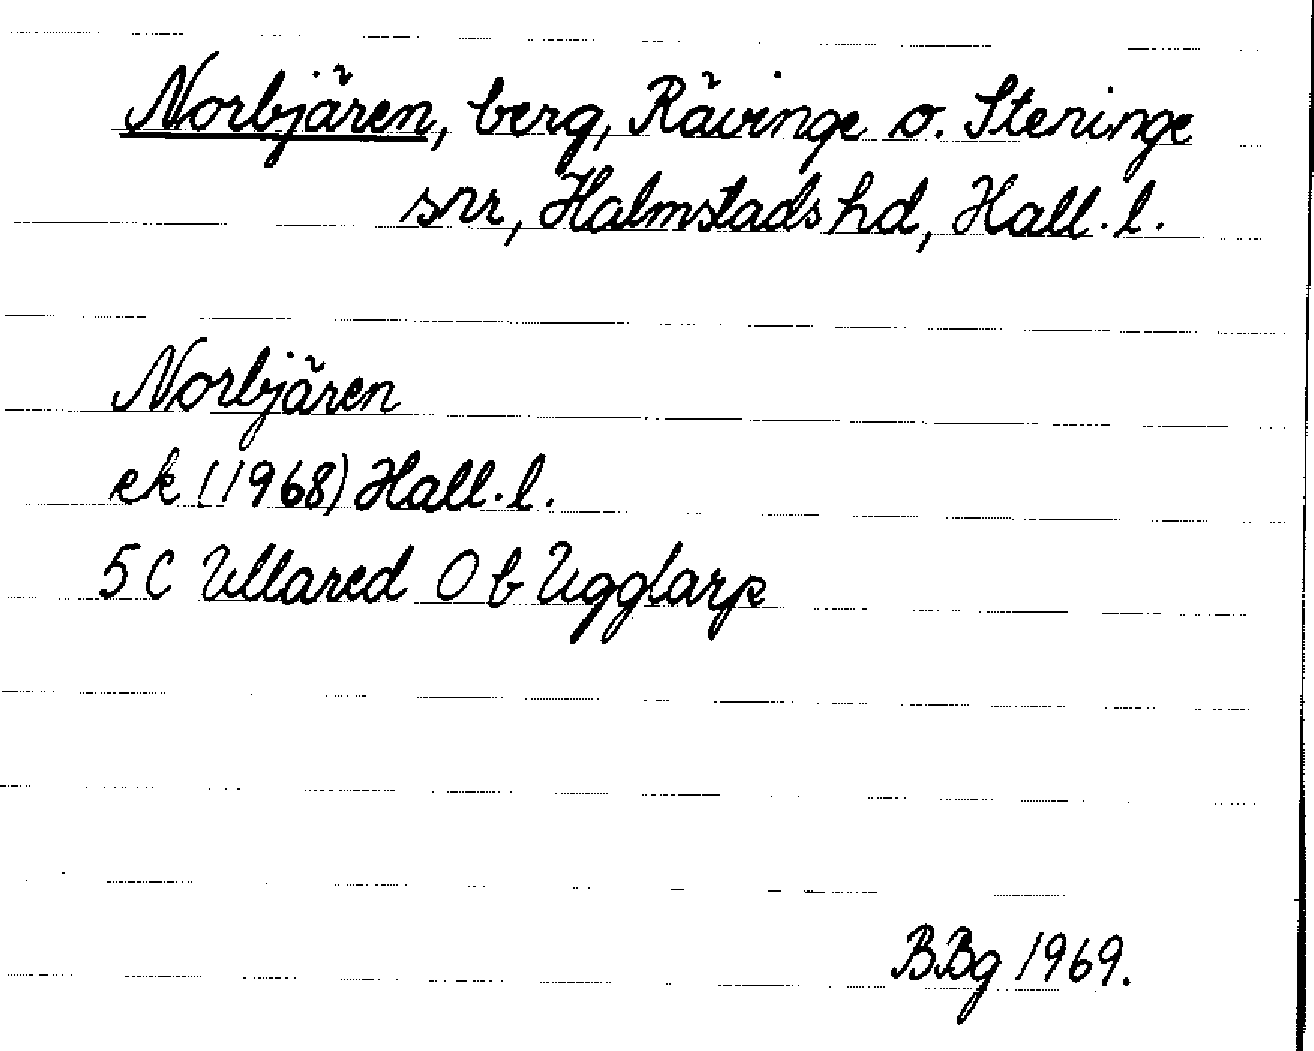 Norbjären, berg, Rävinge o. Steninge
snr, Halmstads hd, Hall. l.
Norbjären
ek (1968) Hall. l.
5 C Ullared O b Ugglarp
BBg 1969.